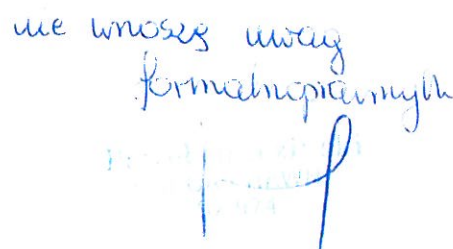 nie wnoszę uwag
formalnoprawnych